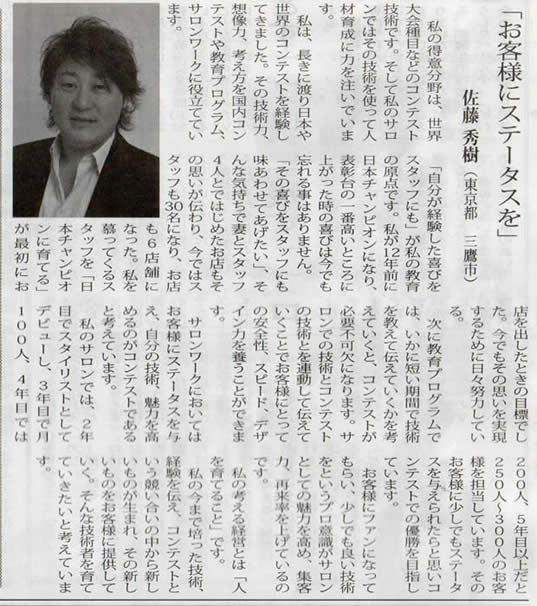 「お客様にステータスを」
佐藤 秀樹（東京都 三鷹市）
私の得意分野は、世界
大会種目などのコンテスト
技術です。そして私のサロ
ンではその技術を使って人
材育成に力を注いでいま
す。
私は、長きに渡り日本や
世界のコンテストを経験し
てきました。その技術力、
想像力、考え方を国内コン
テストや教育プログラム、
サロンワークに役立ててい
ます。
「自分が経験した喜びを
スタッフにも」が私の教育
の原点です。私が12年前に
日本チャンピオンになり、
表彰台の一番高いところに
上がった時の喜びは今でも
忘れる事はありません。
「その喜びをスタッフにも
味あわせてあげたい」、そ
んな気持ちで妻とスタッフ
4人とではじめたお店もそ
の思いが伝わり、今ではス
タッフも30名になり、お店
も6店舗に
なった。私を
慕ってくるス
タッフを「日
本チャンピオ
ンに育てる」
が最初にお
店を出したときの目標でし
た。今でもその思いを実現
するために日々努力してい
る。
次に教育プログラムで
は、いかに短い期間で技術
を教えて伝えていくかを考
えていくと、コンテストが
必要不可欠になります。サ
ロンでの技術とコンテスト
の技術とを連動して伝えて
いくことでお客様にとって
の安全性、スピード、デザ
イン力を養うことができま
す。
サロンワークにおいては
お客様にステータスを与
え、自分の技術、魅力を高
めるのがコンテストである
と考えています。
私のサロンでは、2年
目でスタイリストとして
デビューし、3年目で月
100人、4年目では
200人、5年目以上だと
250人〜300人のお客
様を担当しています。その
お客様に少しでもステータ
スを与えられたらと思いコ
ンテストでの優勝を目指し
ています。
お客様にファンになって
もらい、少しでも良い技術
をというプロ意識がサロン
としての魅力を高め、集客
力、再来率を上げているの
です。
私の考える経営とは「人
を育てること」です。
私の今まで培った技術、
経験を伝え、コンテストと
いう競い合いの中から新し
いものが生まれ、その新し
いものをお客様に提供して
いく。そんな技術者を育て
ていきたいと考えていま
す。